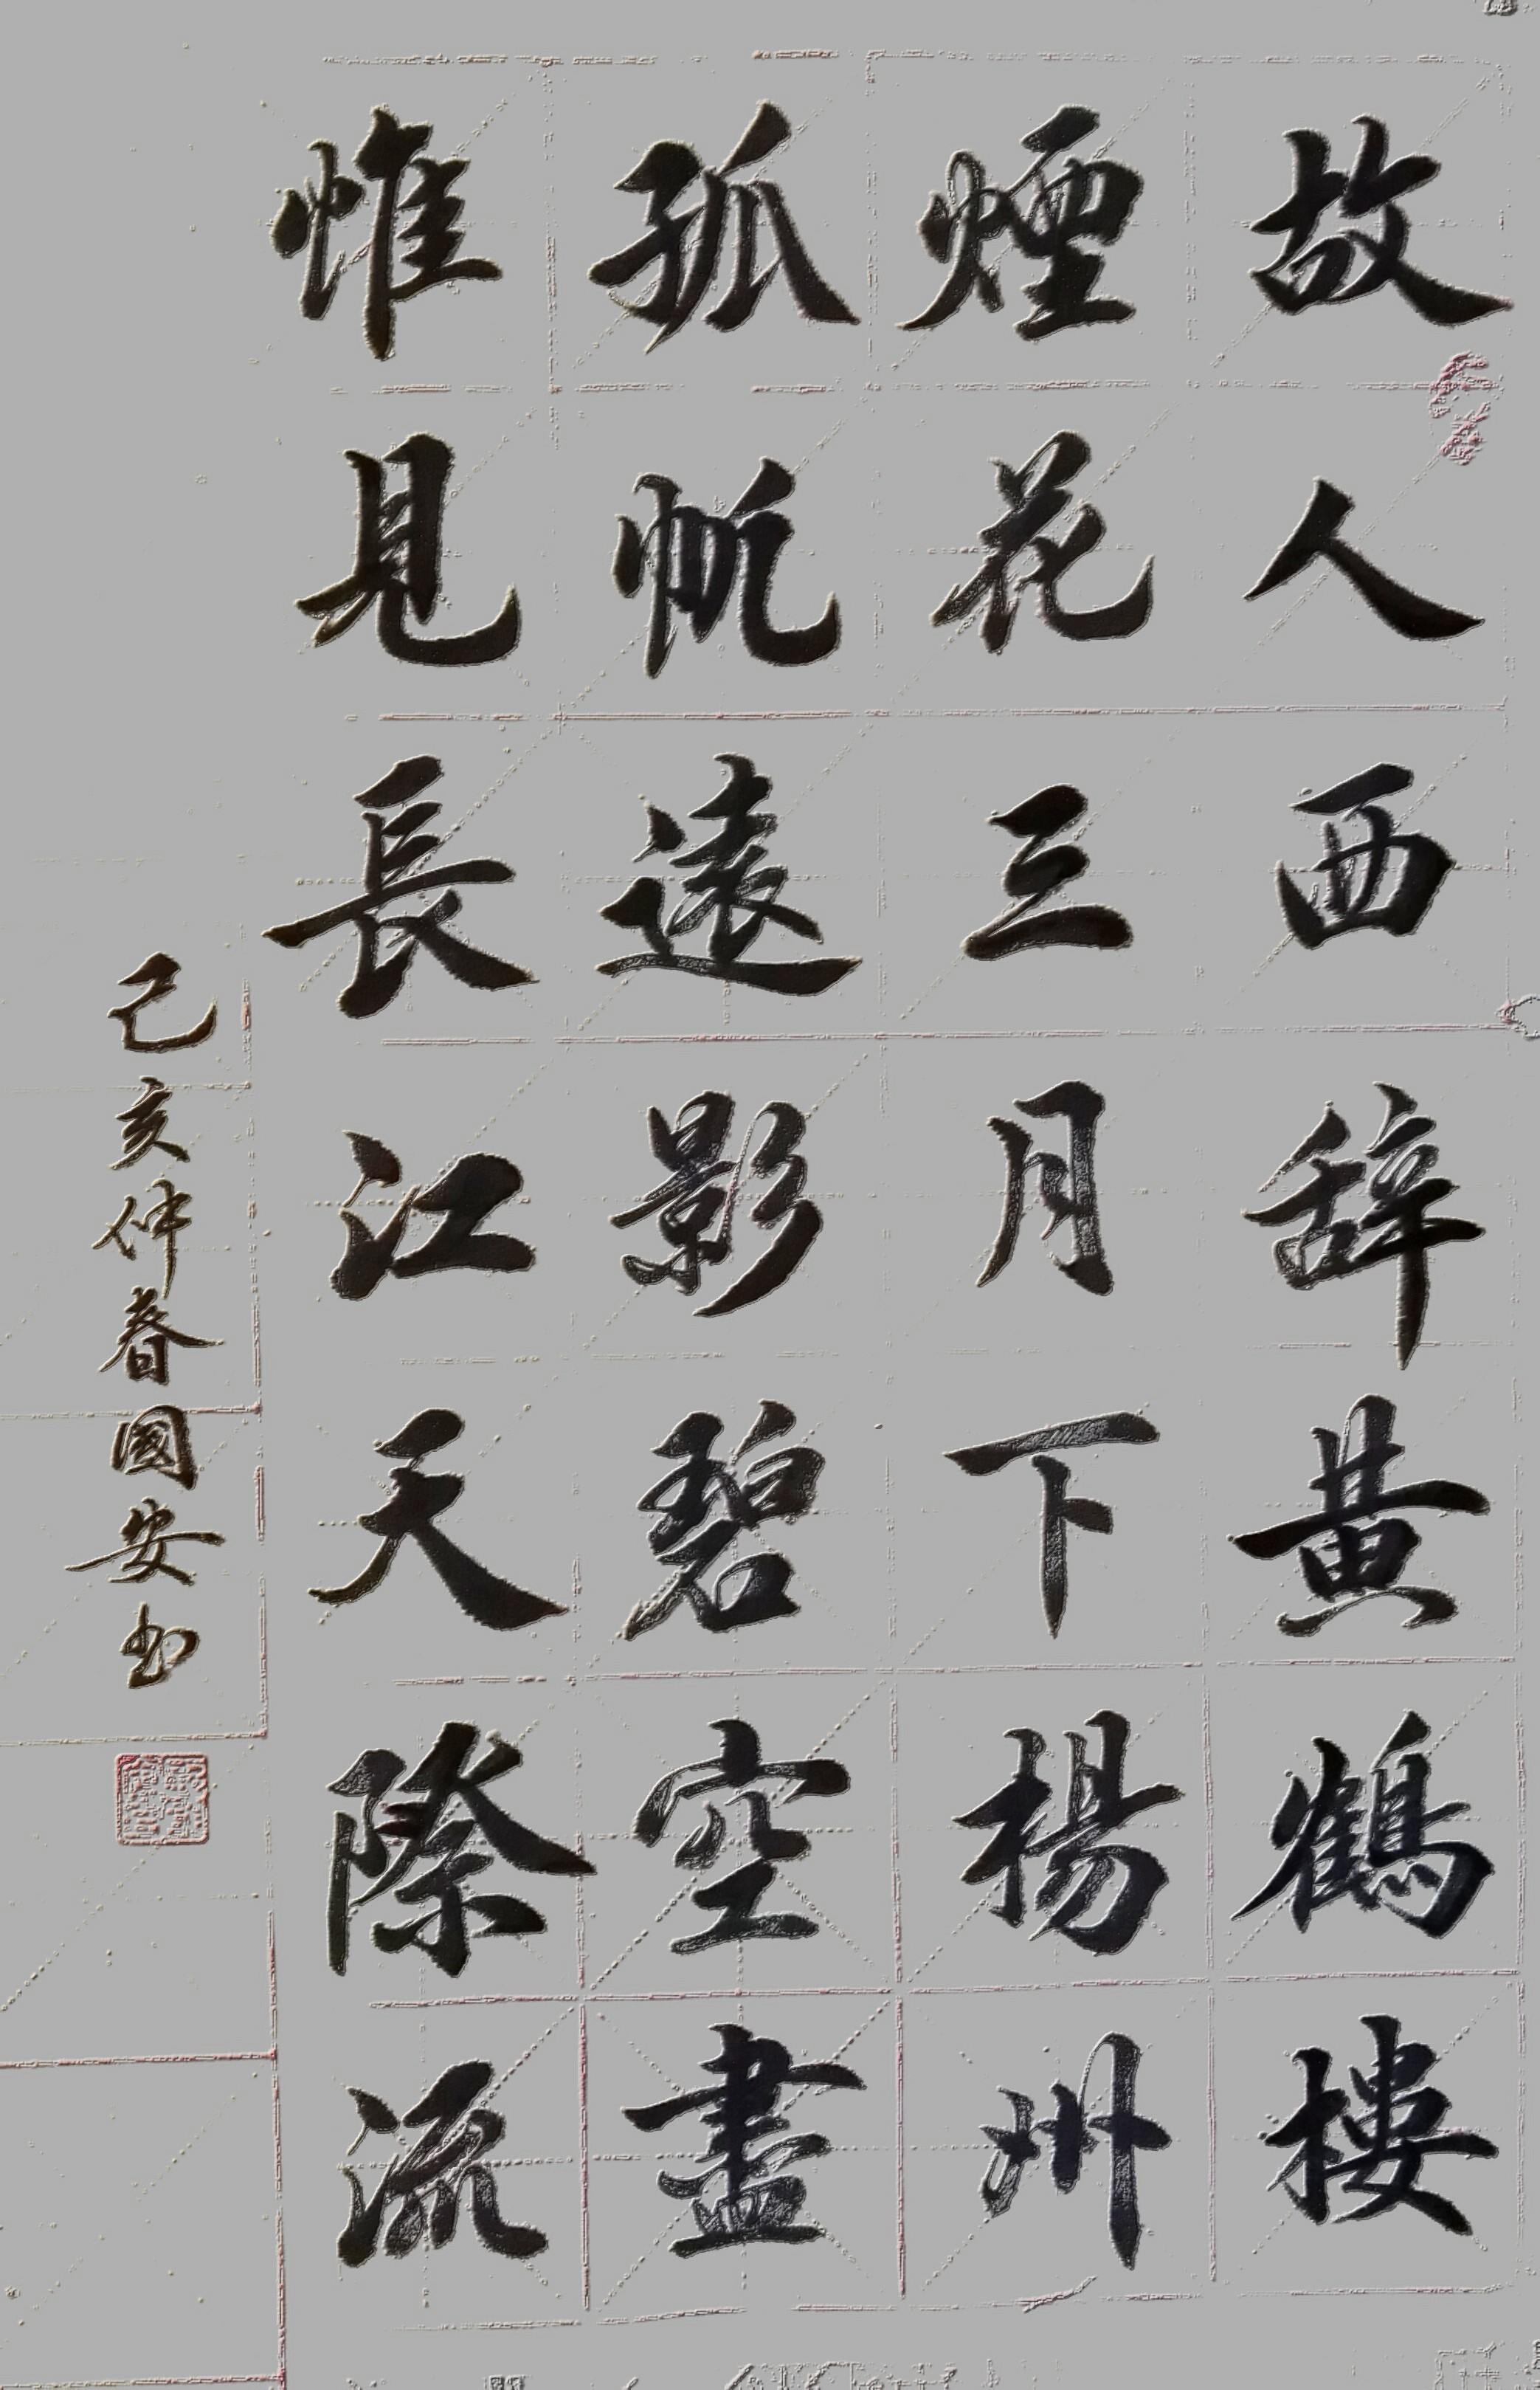 故人西辞黄鶴樓
煙花三月下楊州
孤帆遠影碧空盡
惟見長江天際流
己亥仲春國安书